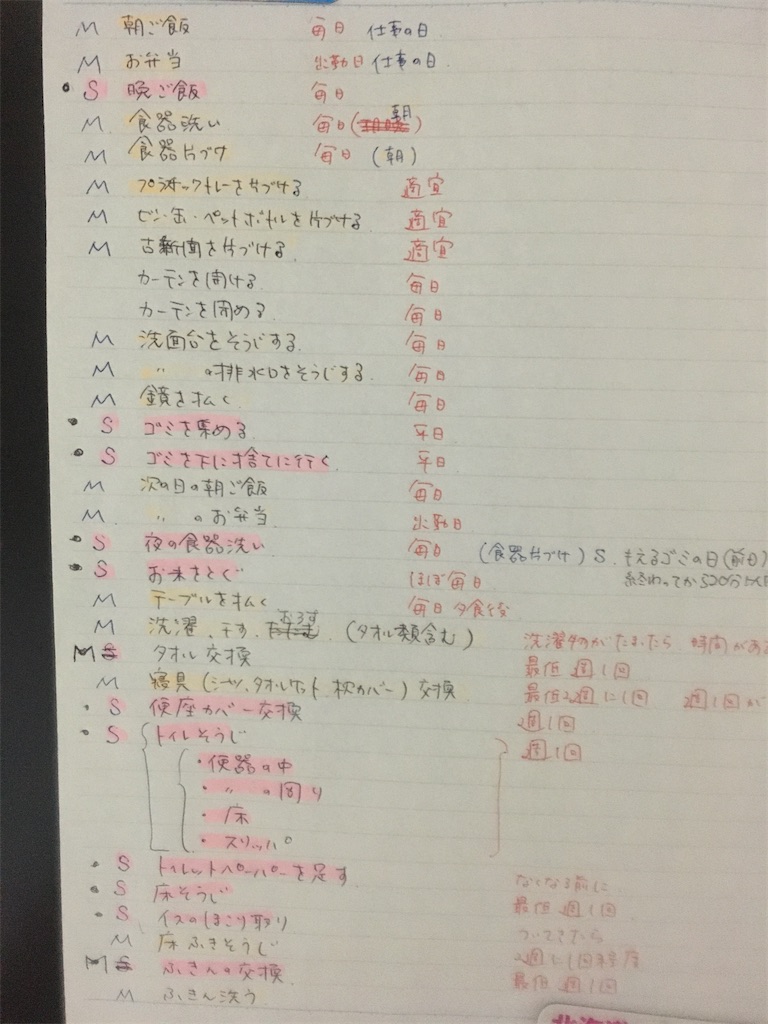 M 朝ご飯 毎日 仕事の日
M お弁当 出勤日 仕事の日
・S 晩ご飯 毎日
M 食器洗い 毎日(朝)
M 食器片づけ 毎日 (朝)
M プラスチックトレーを片づける 適宜
M ビン・缶・ペットボトルを片づける 適宜
M 古新聞を片づける 適宜
カーテンを開ける 毎日
カーテンを閉める 毎日
M 洗面台をそうじする 毎日
M 〃 の排水口をそうじする 毎日
M 鏡をふく 毎日
・S ゴミを集める 平日
・S ゴミを下に捨てに行く 平日
M 次の日の朝ご飯 毎日
M 〃 のお弁当 出勤日
・S 夜の食器洗い 毎日 (食器片づけ) S. もえるゴミの日(前日)
・S お米をとぐ ほぼ毎日 終わってから20分
M テーブルをふく 毎日夕食後
M 洗濯、干す、おろす (タオル類含む) 洗濯物がたまったら 時間がある
M タオル交換 最低週1回
M 寝具(シーツ、タオルケット、枕カバー)交換 最低2週に1回 週1回が
・S 便座カバー交換 週1回
・S トイレそうじ 週1回
・便器の中
・〃 の周り
・床
・スリッパ
・S トイレットペーパーを足す なくなる前に
・S 床そうじ 最低週1回
・S イスのほこり取り ついてきたら
M 床ふきそうじ 2週に1回程度
M ふきんの交換 最低週1回
M ふきん洗う
北海道